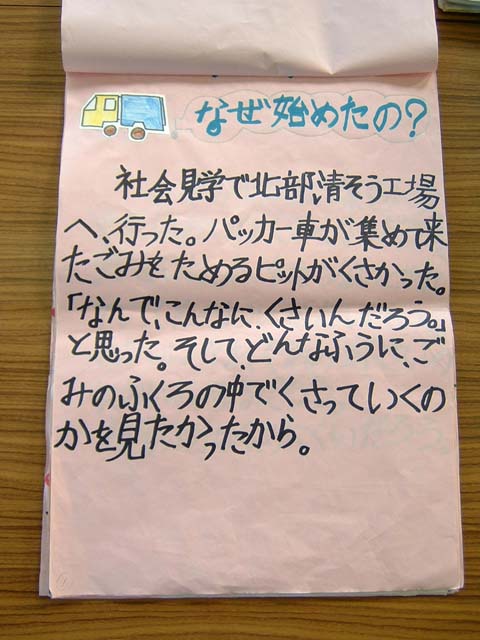 なぜ始めたの？
社会見学で北部清そう工場
へ、行った。パッカー車が集めて来
たごみをためるピットがくさかった。
「なんで、こんなに、くさいんだろう。」
と思った。そして、どんなふうに、ご
みのふくろの中でくさっていくの
かを見たかったから。